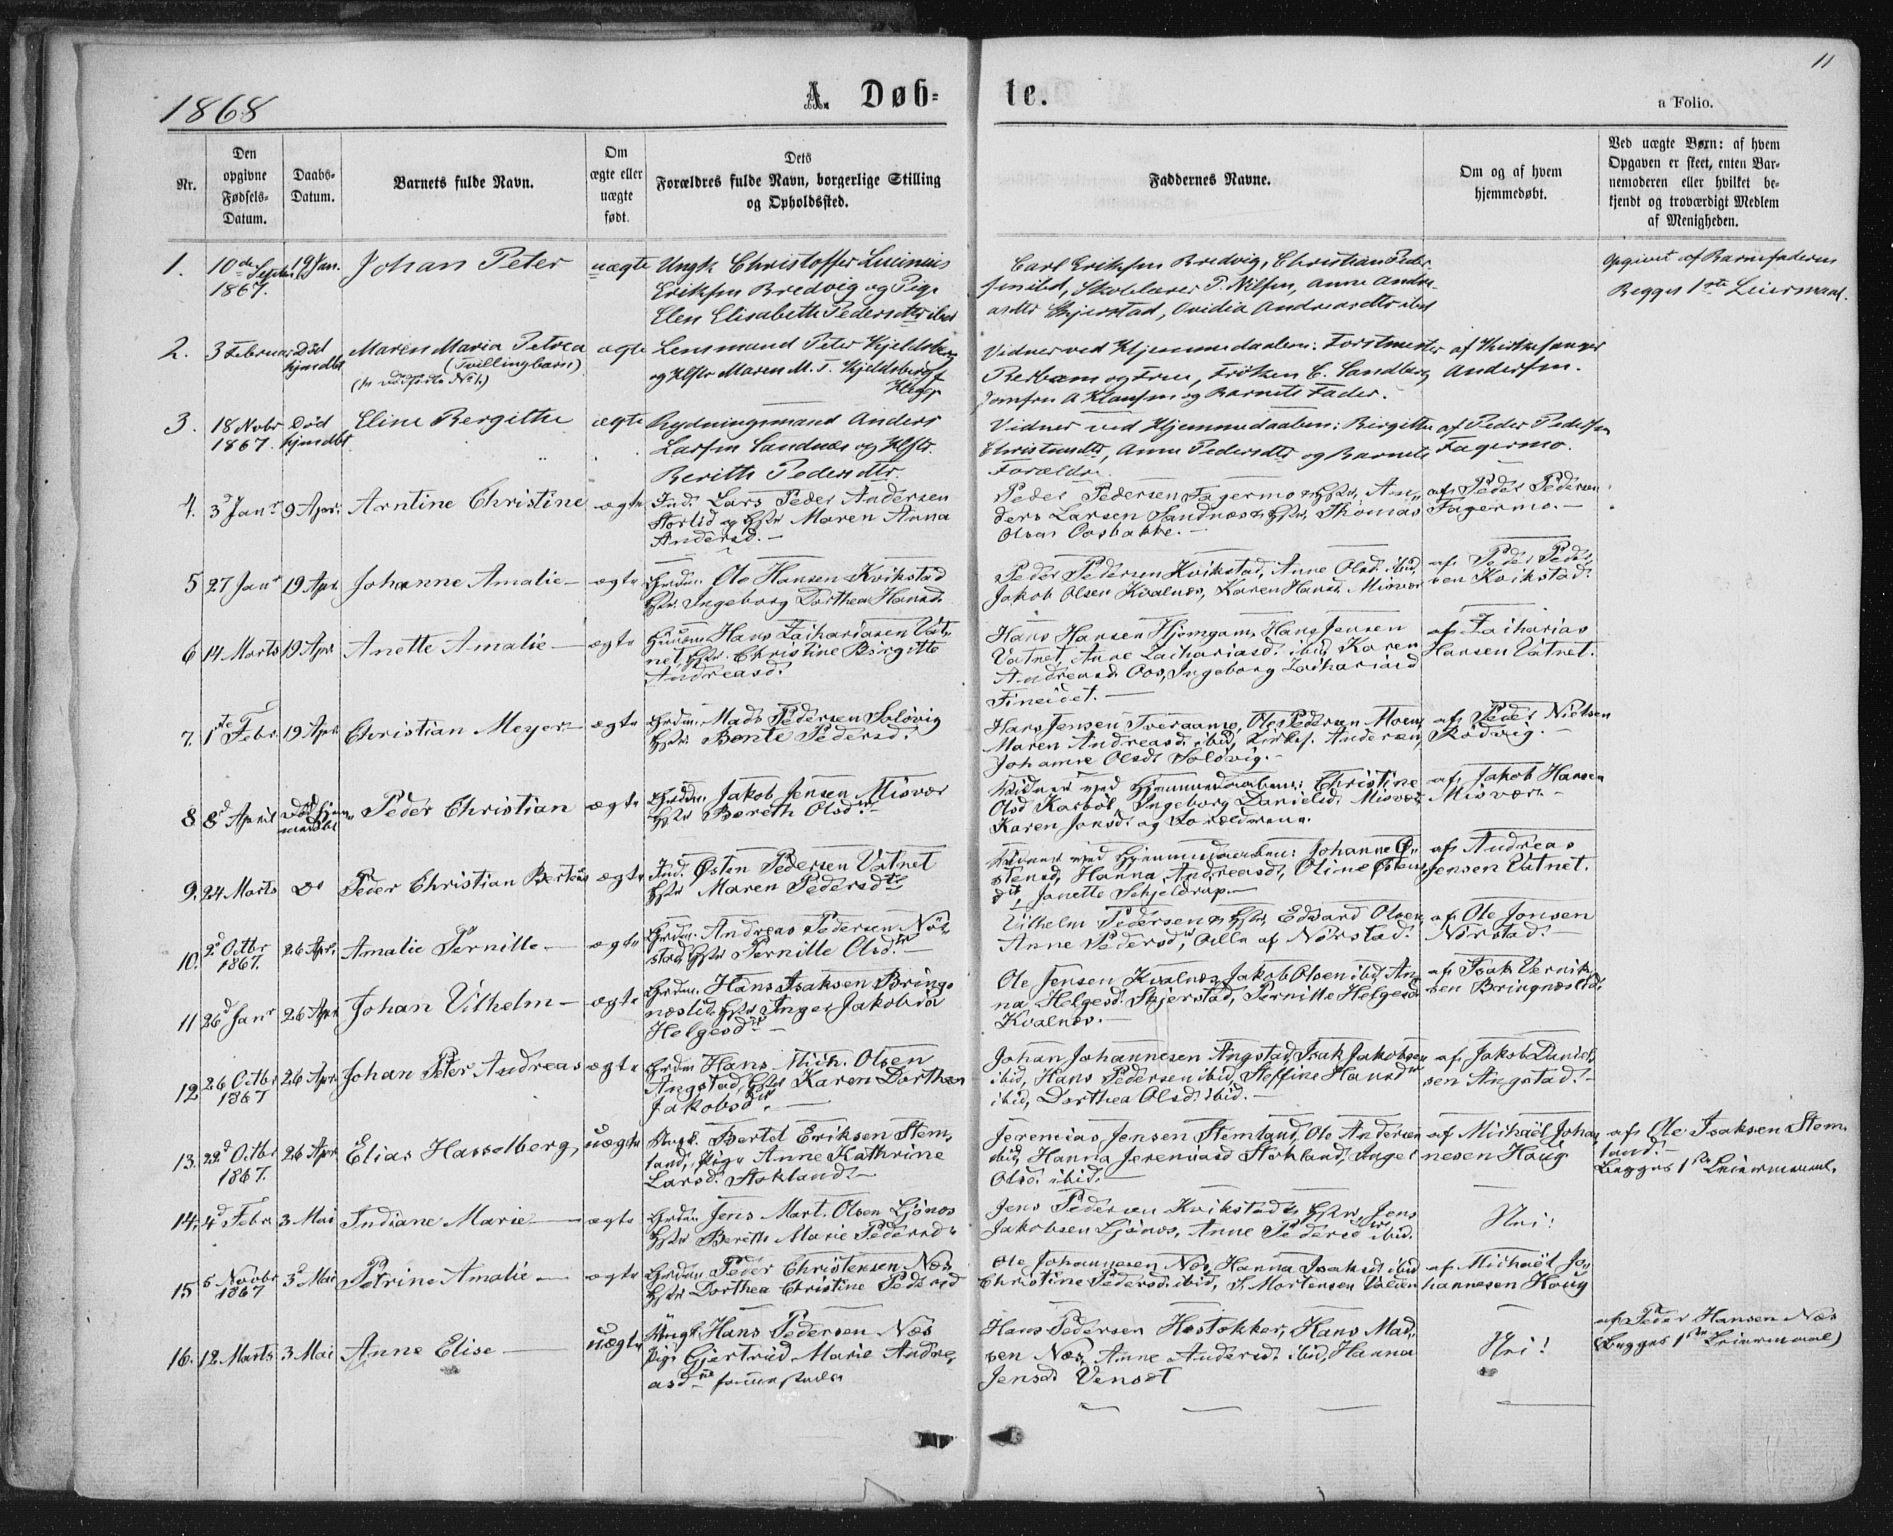 11
1868
A. Døb-
te.
a Folio.
Nr.
Den
opgivne
Fødsels-
Datum.
Daabs-
Datum.
Barnets fulde Navn.
Om
ægte eller
uægte
født.
Dets
Forældres fulde Navn, borgerlige Stilling
og Opholdssted.
Faddernes Navne.
Om og af hvem
hjemmedøbt.
Ved uægte Børn: af hvem
Opgaven er skeet, enten Bar-
nemoderen eller hvilket be-
kjendt og troværdigt Medlem
af Menigheden.
1.
10de
1867.
19 Jan.
Johan Peter
uægte
Ungk. Christoffer
Eriksen Bredvig og Pige
Elen Elisabeth Pedersdtr ibid
Carl Eriksen Bredvig, Christian Peder-
sen ibid, Skolelærer P. Nilsen, Anne Andre-
asdtr Skjerstad, Ovidia Andreasdtr ibid
Opgivet af Barnefaderen
Begges 1ste Leiermaal.
2.
3 Februar
Død
hjmdbt
Maren Maria Petrea
(Tvillingbarn)
ægte
Lensmand Peter Kjeldsberg
og Hstr Maren M. T. Kjeldsberg f.
Vidner ved Hjemmedaaben: Forstmester
og Frue, Frøken C. Sandberg
Jomfru A Klausen og Barnets Fader.
af Kirkesanger
Andersen.
3.
18 Novbr
1867.
Død
hjmdbt
Eline Bergithe
ægte
Rydningsmand Anders
Larsen Sandnæs og Hstr.
Berith Pedersdtr.
Vidner ved Hjemmedaaben: Birgitte
Christensdtr, Anne Pedersdtr og Barnets
Forældre.
af Peder Pedersen
Fagermo.
4.
3d Janr
9 Apr.
Arntine Christine
ægte
Ind. Lars Peder Andersen
Storlid og Hstr Maren Anna
Andersd. —
Peder Pedersen Fagermo & Hstr, An-
ders Larsen Sandnæs & Hstr, Thomas
Olsen Oosbakke. —
af Peder Pedersen
Fagermo. —
5
27 Janr
19 Apr.
Johanne Amalie —
ægte
Grdm. Ole Hansen Kvikstad
Hstr. Ingeborg Dorthea Hansd.
Peder Pedersen Kvikstad, Anne Olsd. ibid,
Jakob Olsen Kvalnes, Karen Hansd. Misvær
af Peder Peder-
sen Kvikstad.
6
14 Marts
19 Apr.
Anette Amalie —
ægte
Huusm. Hans Zachariasen Vat-
net, Hstr. Christine Birgitte
Andreasd.
Hans Hansen Hjemgam, Hans Jensen
Vatnet, Anne Zachariasd. ibid, Karen
Andreasd. Oos, Ingeborg Zachariasd
Fineidet. —
af Zacharias
Hansen Vatnet.
7.
1ste Febr
19 Apr
Christian Meyer —
ægte
Grdm. Mads Pedersen Soløvig
Hstr. Bente Pedersd.
Hans Jensen Tveraamo, Ole Pedersen Moen,
Maren Andreasd. ibid, Kirkes. Andersen,
Johanne Olsd. Soløvig. —
af Peder Nielsen
Rødvig. —
8
8d April
Død hjem-
medbt
Peder Christian
ægte
Grdm. Jakob Jensen Misvær
Hstr Bereth Olsdtr —
Vidner ved Hjemmedaaben: Christine
Olsd Karbøl, Ingeborg Danielsd. Misvær,
Karen Jonsd. og Forældrene.
af Jakob Hansen
Misvær. —
9.
24 Marts
Do
Peder Christian Berteus
ægte
Ind. Østen Pedersen Vatnet
Hstr Maren Pedersdtr
Vidner ved Hjemmedaaben: Johanne Ø-
stensd, Hanna Andreasd, Oline Østens-
dtr, Janette Schjeldrup. —
af Andreas
Jensen Vatnet.
10.
2d Octbr
1867.
26 Apr.
Amalie Pernille —
ægte
Grdm. Andreas Pedersen Nør-
stad, Hstr Pernille Olsdtr —
Vilhelm Pedersen & Hstr, Edvard Olsen,
Anne Pedersdtr, Alle af Nørstad.
af Ole Jonsen
Nørstad. —
11
26d Janr
26 Apr
Johan Vilhelm —
ægte
Grdm. Hans Isaksen Bring-
næslid, Hstr Inger Jakobea
Helgesdtr —
Ole Jensen Kvalnes, Jakob Olsen ibid, An-
na Helgesd. Skjerstad, Pernille Helgesd
Kvalnes. —
af Isak Vernik-
sen Bringnæslid.
12
26 Octbr
1867
26 Apr
Johan Peter Andreas
ægte
Grdm Hans Mich. Olsen
Angstad, Hstr Karen Dorthea
Jakobsdtr —
Johan Johannesen Angstad, Isak Jakobsen
ibid, Hans Pedersen ibid, Steffine Hansdtr
ibid, Dorthea Olsd. ibid. —
af Jakob Daniel-
sen Angstad. —
13.
22d Octbr
1867.
26 Apr
Elias Hasselberg,
uægte
Ungk. Bertel Eriksen Stem-
land, Pige Anne Kathrine
Larsd. Stokland. —
Jeremias Jensen Stemland, Ole Andersen
ibid, Hanna Jeremiasd Stokland, Inger
Olsd. ibid. —
af Michael Johan-
nesen Haug
af Ole Isaksen Stem-
land. —
Begges 1ste Leiermaal.
14.
4d Febr
3 Mai
Indiane Marie —
ægte
Grdm Jens Mart. Olsen Ljønes
Hstr Berith Marie Pedersd.
Jens Pedersen Kvikstad & Hstr, Jens
Jakobsen Ljønes, Anne Pedersdtr ibid.
Nei!
15
6 Novbr
1867
3d Mai
Petrine Amalie —
ægte
Grdm Peder Christensen Næs
Hstr Dorthea Christine Pedersd
Ole Johannesen Næs, Hanna Isaksd. ibid
Christine Pedersd. ibid, S. Mortensen Valnen
af Michael Jo-
hannesen Haug
16.
12 Marts
3 Mai
Anne Elise —
uægte
Ungk Hans Pedersen Næs
Pige Gjertrud Marie Andre-
asdtr sammesteds
Hans Pedersen Hestekker, Hans Mad-
sen Næs, Anne Andersd. ibid, Hanna
Jensd. Venset
Nei!
af Peder Hansen Næs
(Begges 1ste Leiermaal)